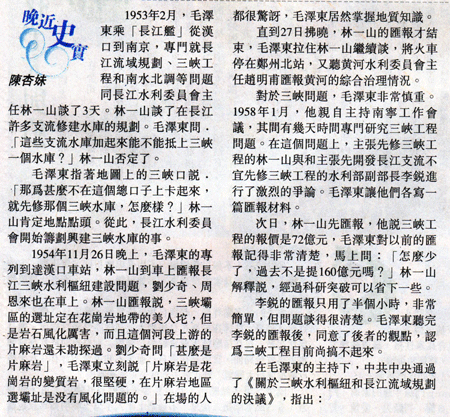 晚近史實
陳杏妹
1953年2月，毛澤
東乘「長江艦」從漢
口到南京，專門就長
江流域規劃、三峽工
程和南水北調等問題
同長江水利委員會主
任林一山談了3天。林一山談了在長江
許多支流修建水庫的規劃。毛澤東問．
「這些支流水庫加起來能不能抵上三峽
一個水庫？」林一山否定了。
毛澤東指著地圖上的三峽口說．
「那爲甚麽不在這個總口子上卡起來，
就先修那個三峽水庫，怎麼樣？」林一
山肯定地點點頭。從此，長江水利委員
會開始籌劃興建三峽水庫的事。
1954年11月26日晚上，毛澤東的專
列到達漢口車站，林一山到車上匯報長
江三峽水利樞紐建設問題，劉少奇、周
恩來也在車上。林一山匯報說，三峽壩
區的選址定在花崗岩地帶的美人坨，但
是岩石風化厲害，而且這個河段上游的
片麻岩還未勘探過。劉少奇問「甚麼是
片麻岩」，毛澤東立刻說「片麻岩是花
崗岩的變質岩，很堅硬，在片麻岩地區
選壩址是沒有風化問題的。」在場的人
都很驚訝，毛澤東居然掌握地質知識。
直到27日拂曉，林一山的匯報才結
束，毛澤東拉住林一山繼續談，將火車
停在鄭州北站，又聽黃河水利委員會主
任趙明甫匯報黃河的綜合治理情況。
對於三峽問題，毛澤東非常慎重。
1958年1月，他親自主持南寧工作會
議，其間有幾天時間專門研究三峽工程
問題。在這個問題上，主張先修三峽工
程的林一山與和主張先開發長江支流不
宜先修三峽工程的水利部副部長李銳進
行了激烈的爭論。毛澤東讓他們各寫一
篇匯報材料。
次日，林一山先匯報，他說三峽工
程的報價是72億元，毛澤東對以前的匯
報記得非常清楚，馬上問：「怎麼少
了，過去不是提160億元嗎？」林一山
解釋說，經過科研突破可以省下一些。
李銳的匯報只用了半個小時，非常
簡單，但問題談得很清楚。毛澤東聽完
李銳的匯報後，同意了後者的觀點，認
爲三峽工程目前尚搞不起來。
在毛澤東的主持下，中共中央通過
了《關於三峽水利樞紐和長江流域規劃
的決議》，指出：